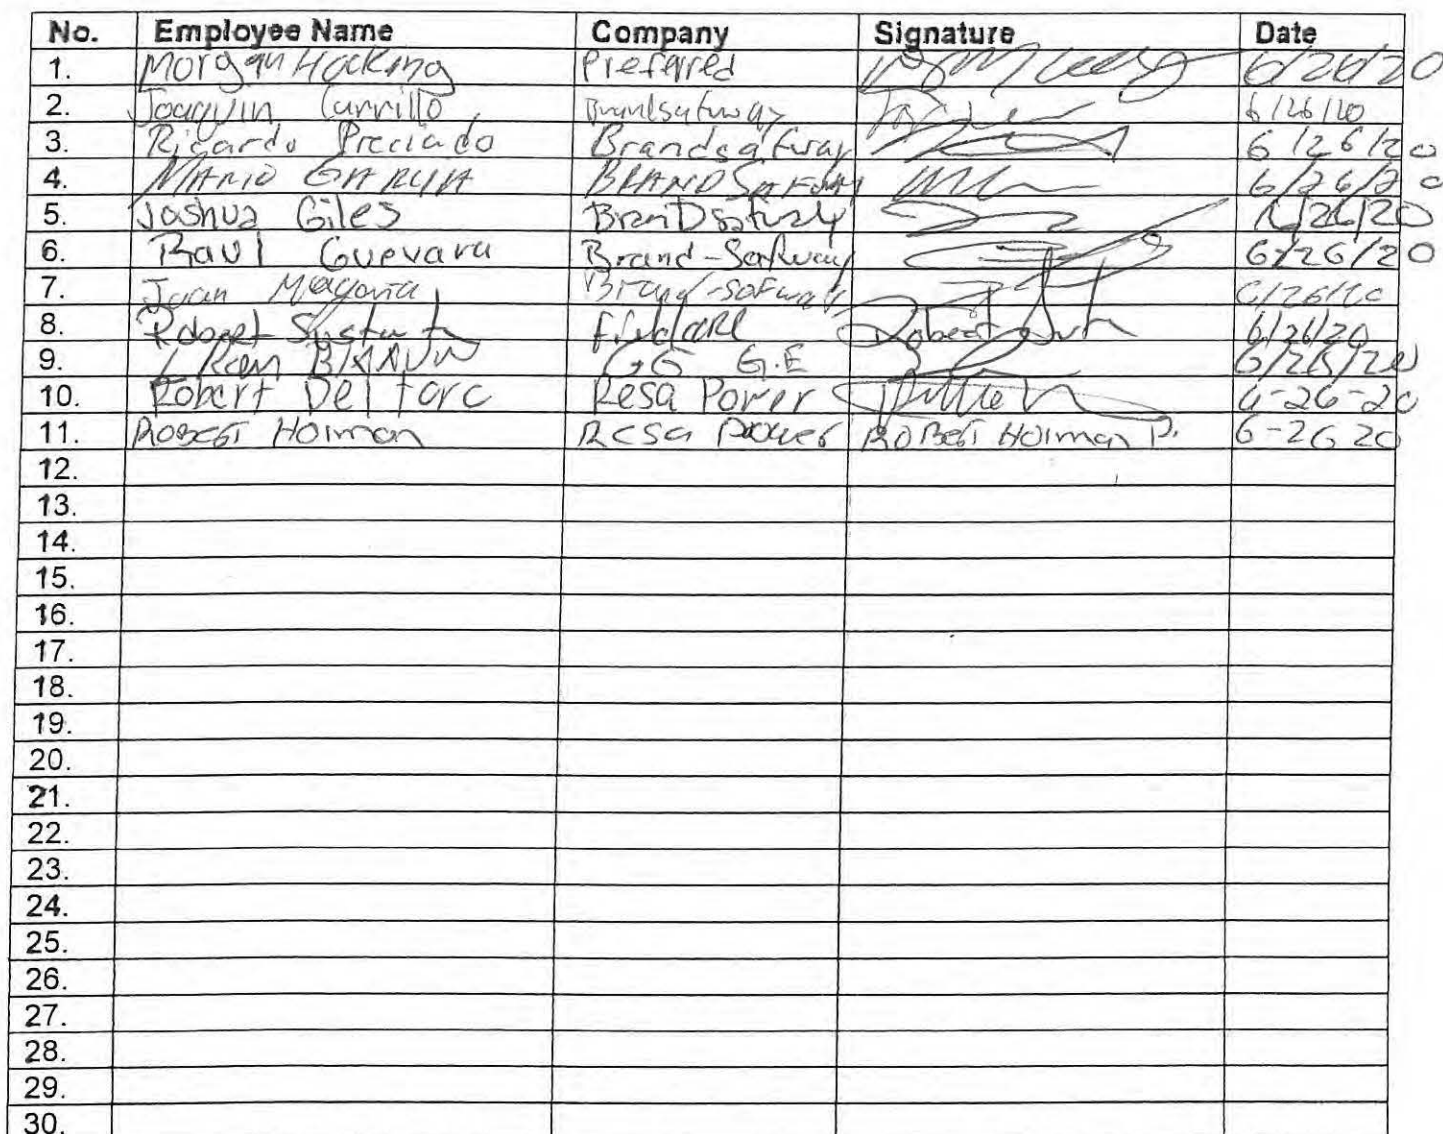 No. Employee Name Company Signature Date
1. Morgan Hocking Preferred 6/26/20
2. Joaquin Carrillo Brandsafway 6/26/20
3. Ricardo Preciado Brandsafway 6/26/20
4. MARIO GARCIA BRAND SAFWAY 6/26/20
5. Joshua Giles BranDsafway 6/26/20
6. Raul Guevara Brand-Safway 6/26/20
7. Juan Magana Brand-safway 6/26/20
8. Robert Robert 6/26/20
9. G.E 6/26/20
10. Robert Del Resa Power 6-26-20
11. Robert Holman Resa Power Robert Holman P. 6-26 20
12.
13.
14.
15.
16.
17.
18.
19.
20.
21.
22.
23.
24.
25.
26.
27.
28.
29.
30.